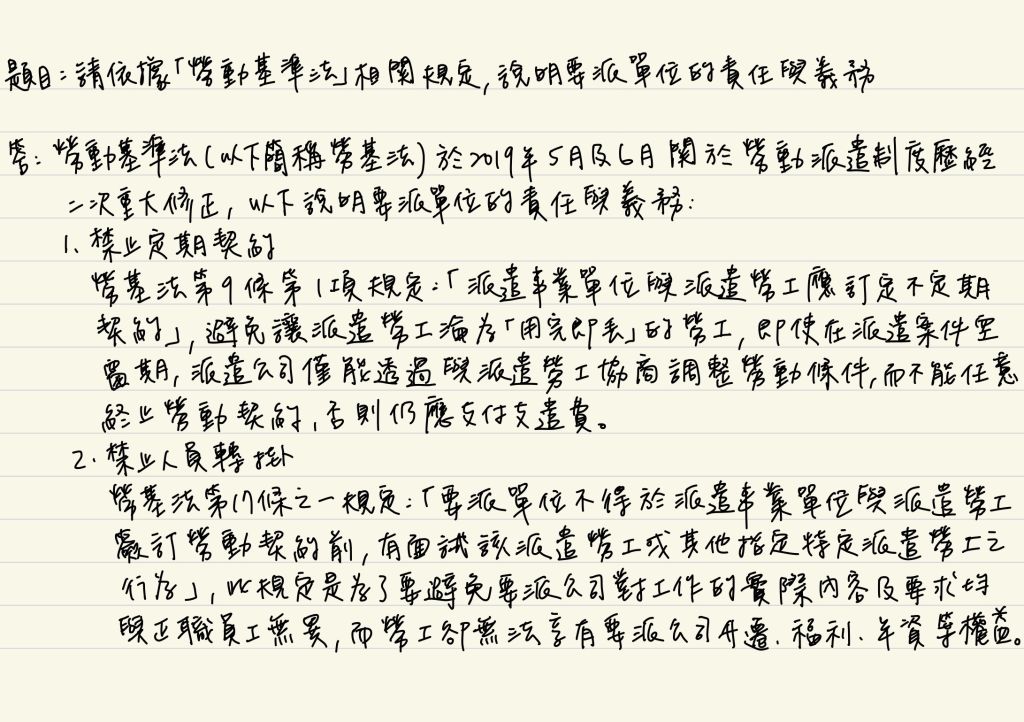 題目：請依據「勞動基準法」相關規定，說明要派單位的責任與義務
答：勞動基準法(以下簡稱勞基法)於2019年5月及6月關於勞動派遣制度歷經
二次重大修正，以下說明要派單位的責任與義務：
1. 禁止定期契約
勞基法第9條第1項規定：「派遣事業單位與派遣勞工應訂定不定期
契約」，避免讓派遣勞工淪為「用完即丟」的勞工，即使在派遣案件空
窗期，派遣公司僅能透過與派遣勞工協商調整勞動條件，而不能任意
終止勞動契約，否則仍應支付支遣費。
2. 禁止人員轉掛
勞基法第17條之一規定：「要派單位不得於派遣事業單位與派遣勞工
簽訂勞動契約前，有面試該派遣勞工或其他指定特定派遣勞工之
行為」，此規定是為了要避免要派公司對工作的實際內容及要求均
與正職員工無異，而勞工卻無法享有要派公司升遷、福利、年資等權益。